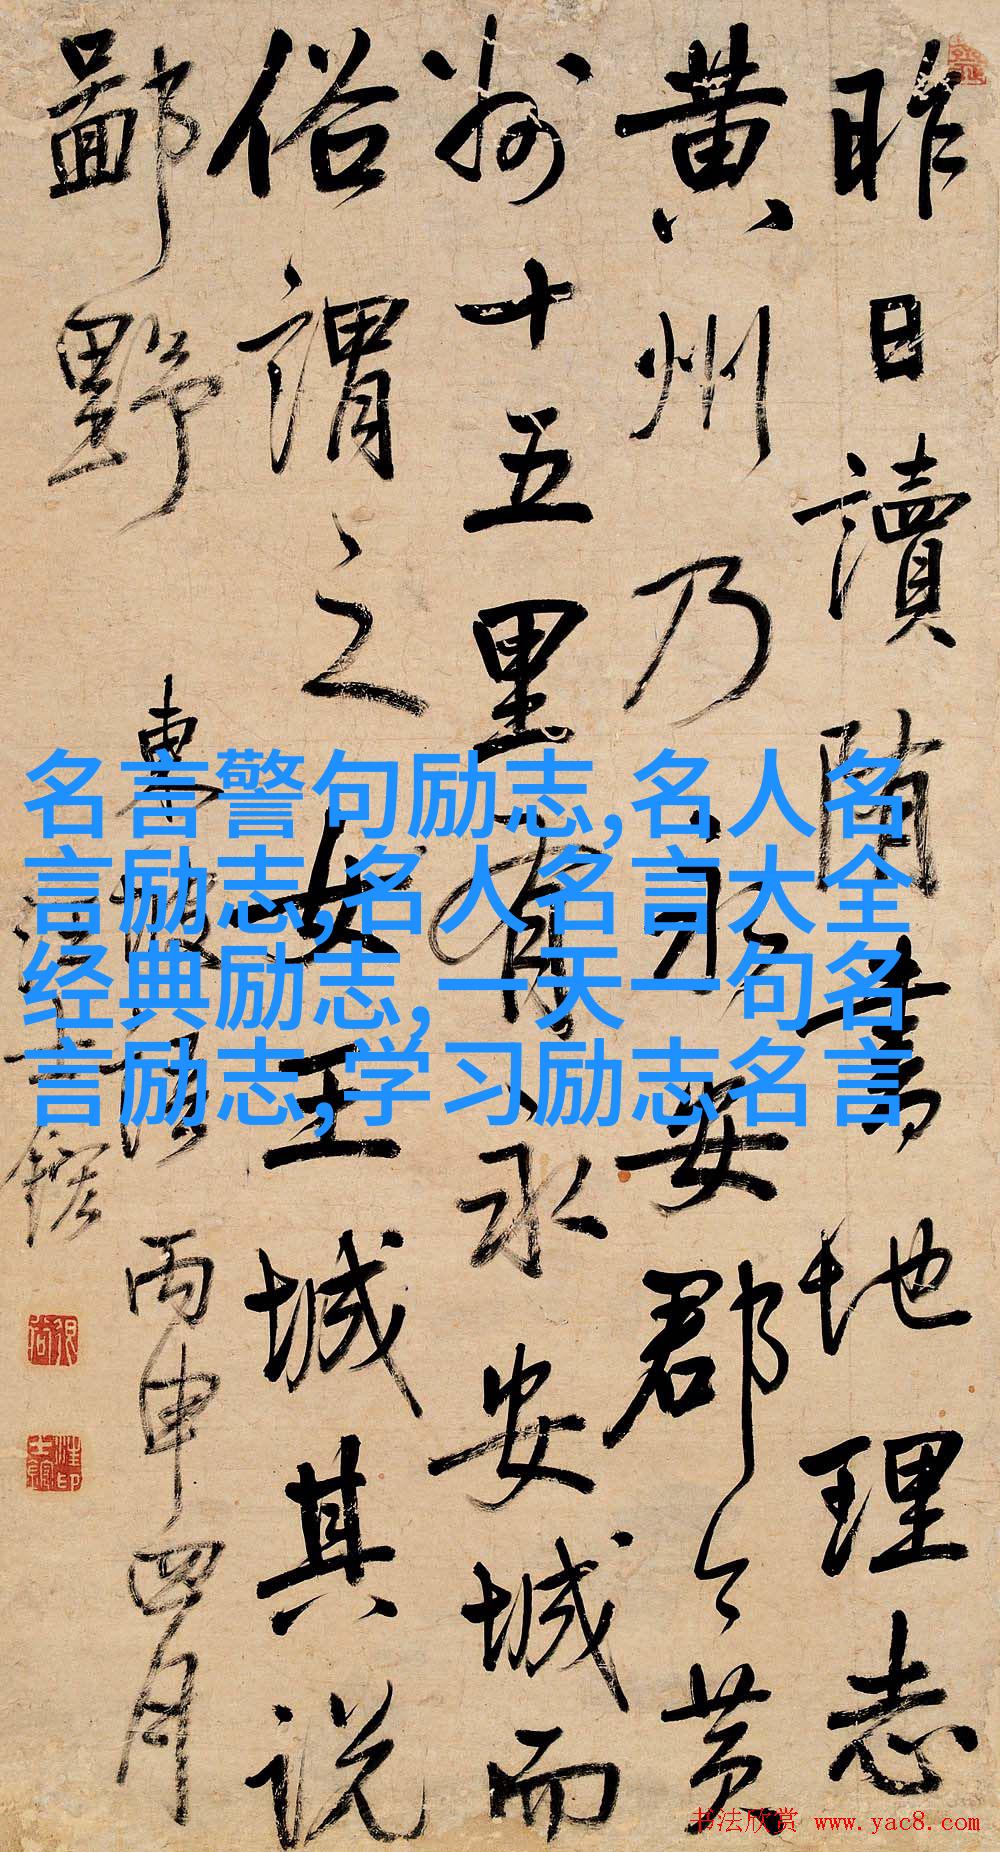 昨日讀隋書地理志
黄州乃永安郡今黄
州十五里有永安城而
俗謂之女王城其説
鄙野
東坡語 丙申四月
汪士鋐
名言警句励志,名人名
言励志,名人名言大全
经典励志,一天一句名
言励志,学习励志名言
书法欣赏 www.yac8.com